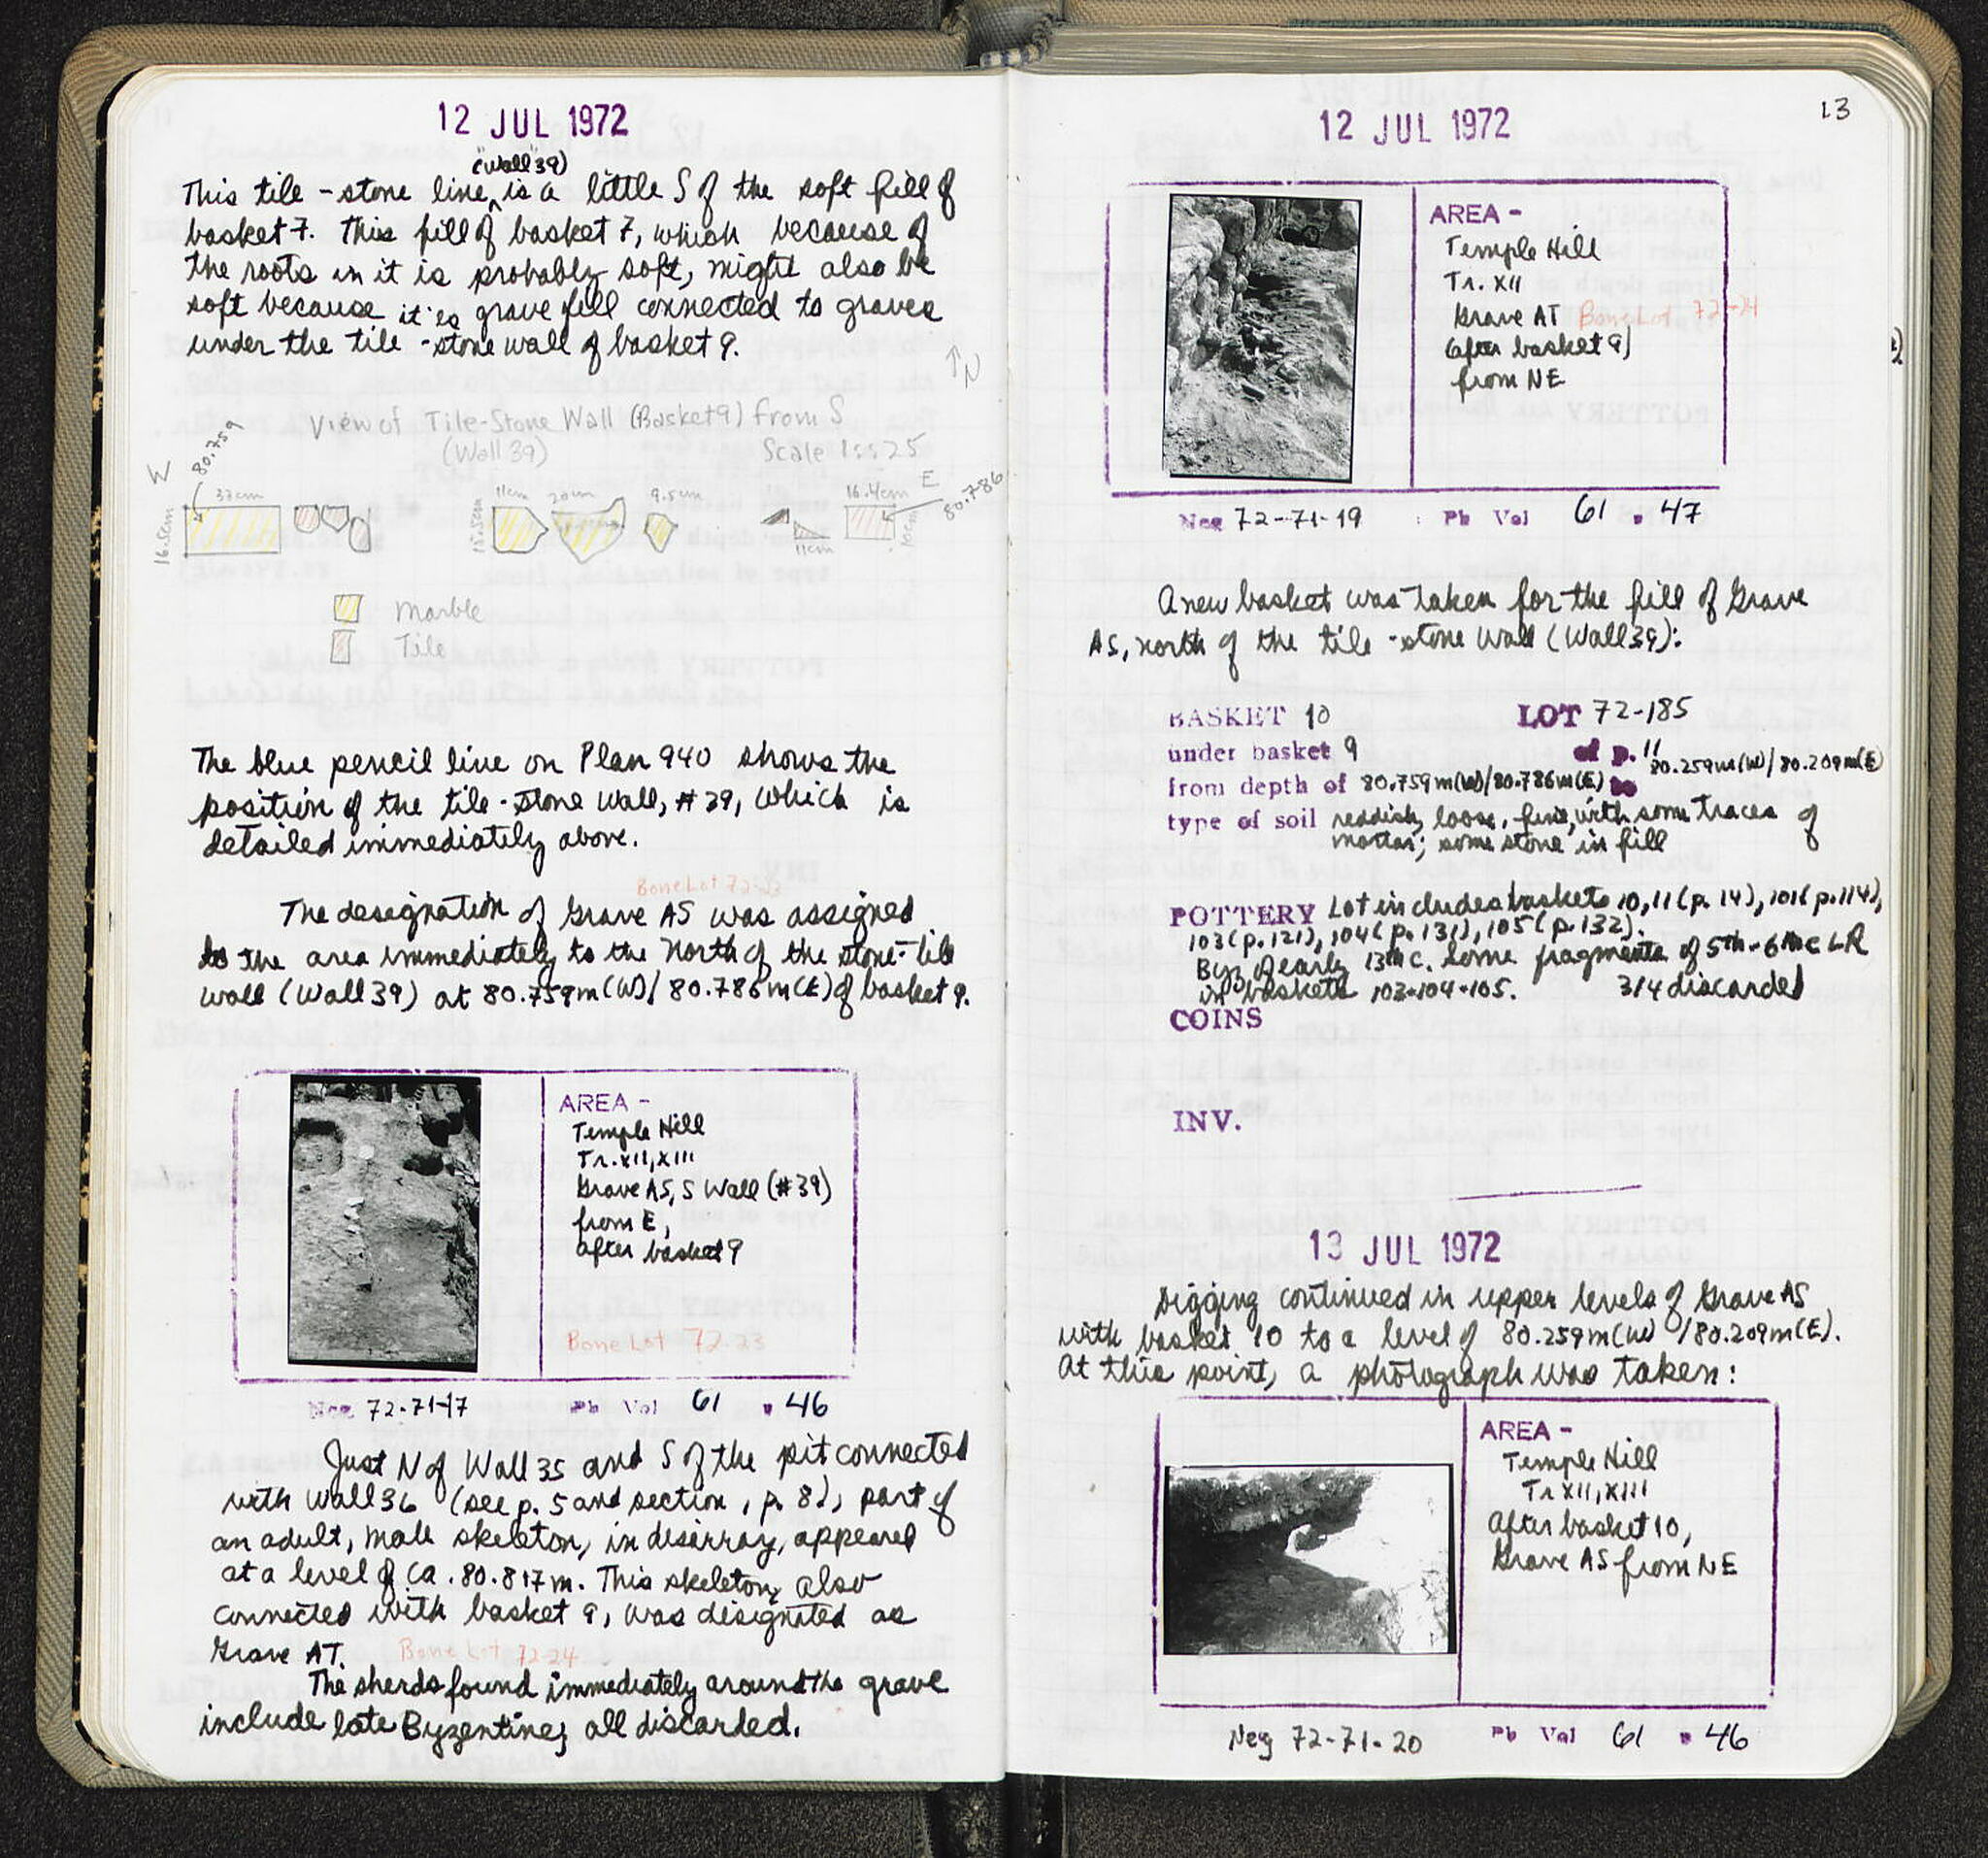 12 JUL 1972
("Wall" 39)
This tile-stone line is a little S of the soft fill of
basket 7. This fill of basket 7, which because of
the roots in it is probably soft, might also be
soft because it is grave fill connected to graves
under the tile-stone wall of basket 9.
↑N
View of Tile-Stone Wall (Basket 9) from S
(Wall 39) Scale 1:25
W 80.759
33cm 11cm 20cm 9.5cm 16.4cm E 80.786
16.5cm 11cm 10cm
Marble
Tile
The blue pencil line on Plan 940 shows the
position of the tile-stone Wall, #39, which is
detailed immediately above.
Bone Lot 72-23
The designation of Grave AS was assigned
to the area immediately to the North of the stone-tile
wall (Wall 39) at 80.759m(W)/80.786m(E) of basket 9.
AREA -
Temple Hill
Tr. XII, XIII
Grave AS, S Wall (#39)
from E,
after basket 9
Bone Lot 72-23
Neg 72-71-17 Ph Vol 61 p 46
Just N of Wall 35 and S of the pit connected
with Wall 36 (see p. 5 and section, p. 8), part of
an adult, male skeleton, in disarray, appeared
at a level of ca. 80.817m. This skeleton, also
connected with basket 9, was designated as
Grave AT. Bone Lot 72-24
The sherds found immediately around the grave
include late Byzentine; all discarded.
13
12 JUL 1972
AREA -
Temple Hill
Tr. XII
Grave AT Bone Lot 72-24
(after basket 9)
from NE
Neg 72-71-19 Ph Vol 61 p 47
A new basket was taken for the fill of Grave
AS, north of the tile-stone wall (Wall 39):
BASKET 10 LOT 72-185
under basket 9 of p. 11
from depth of 80.759m(W)/80.786m(E) to 80.259m(W)/80.209m(E)
type of soil reddish, loose, fine, with some traces of
mortar; some stone in fill
POTTERY Lot includes baskets 10, 11 (p. 14), 101 (p. 114),
103 (p. 121), 104 (p. 131), 105 (p. 132).
Byz of early 13th c. Some fragments of 5th-6th c LR
in baskets 103-104-105. 314 discarded
COINS
INV.
13 JUL 1972
Digging continued in upper levels of Grave AS
with basket 10 to a level of 80.259m(W)/80.209m(E).
At this point, a photograph was taken:
AREA -
Temple Hill
Tr XII, XIII
After basket 10,
Grave AS from NE
Neg 72-71-20 Ph Vol 61 p 46